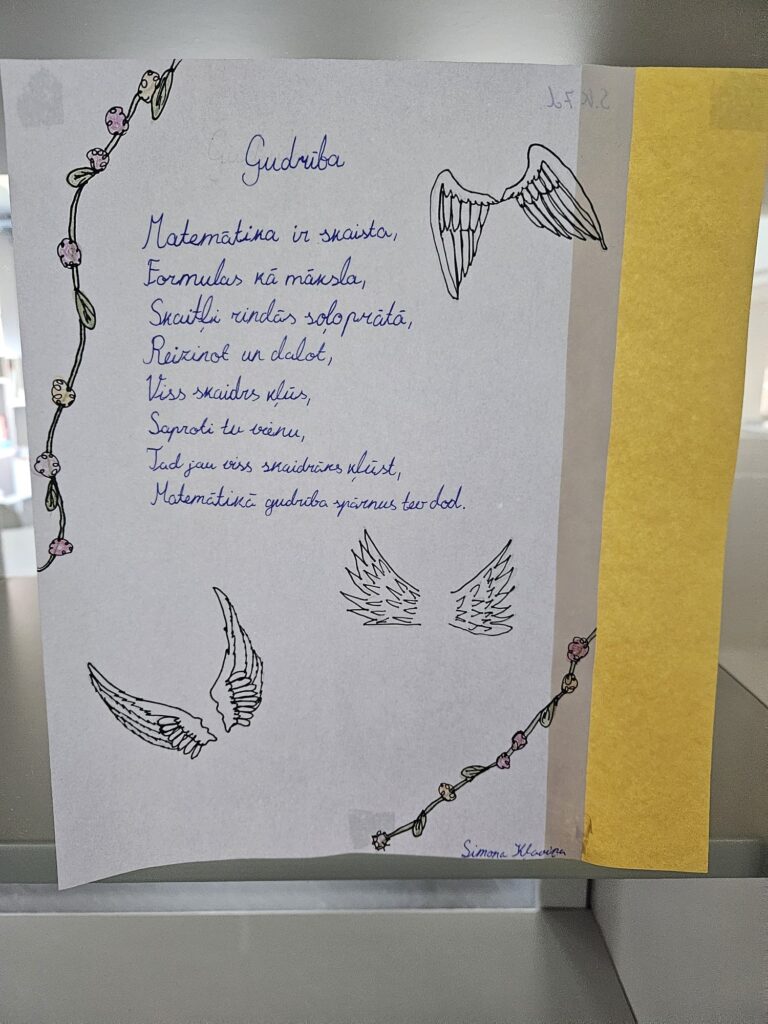 Gudrība
Matemātika ir skaista,
Formulas kā māksla,
Skaitļi rindās soļoprātā,
Reizinot un dalot,
Viss skaidrs kļūs,
Saproti tu vienu,
Tad jau viss skaidrāks kļūst,
Matemātikā gudrība spārnus tev dod.
Simona Kļaviņa